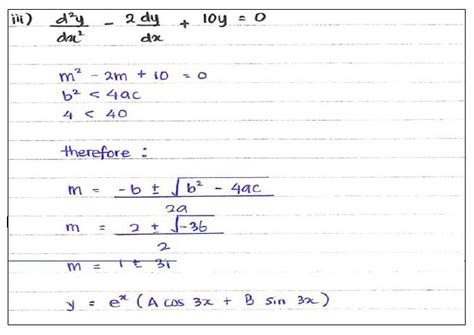 iii) d²y/dx² - 2dy/dx + 10y = 0
m² - 2m + 10 = 0
b² < 4ac
4 < 40
therefore :
m = -b ± √b² - 4ac / 2a
m = 2 ± √-36 / 2
m = 1 ± 3i
y = eˣ (A cos 3x + B sin 3x)